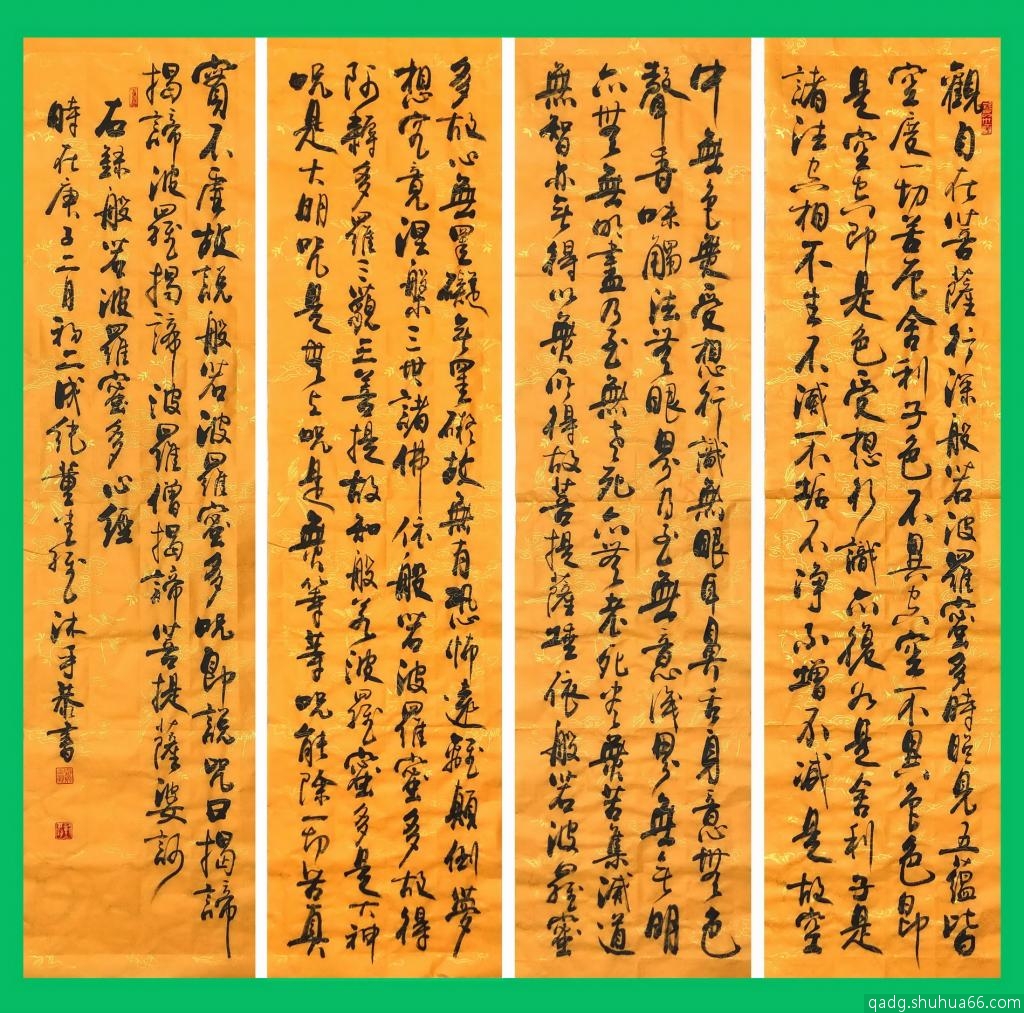 觀自在菩薩行深般若波羅蜜多時照見五蘊皆
空度一切苦厄舍利子色不異空空不異色色即
是空空即是色受想行識亦復如是舍利子是
諸法空相不生不滅不垢不淨不增不減是故空
中無色無受想行識無眼耳鼻舌身意無色
聲香味觸法無眼界乃至無意識界無無明
亦無無明盡乃至無老死亦無老死盡無苦集滅道
無智亦無得以無所得故菩提薩埵依般若波羅蜜
多故心無罣礙無罣礙故無有恐怖遠離顛倒夢
想究竟涅槃三世諸佛依般若波羅蜜多故得
阿耨多羅三藐三菩提故知般若波羅蜜多是大神
呪是大明呪是無上呪是無等等呪能除一切苦真
實不虛故說般若波羅蜜多呪即說咒曰揭諦
揭諦波羅揭諦波羅僧揭諦菩提薩婆訶
右錄般若波羅蜜多心經
時在庚子二月初二 董 沐手恭書
qadg.shuhua66.com